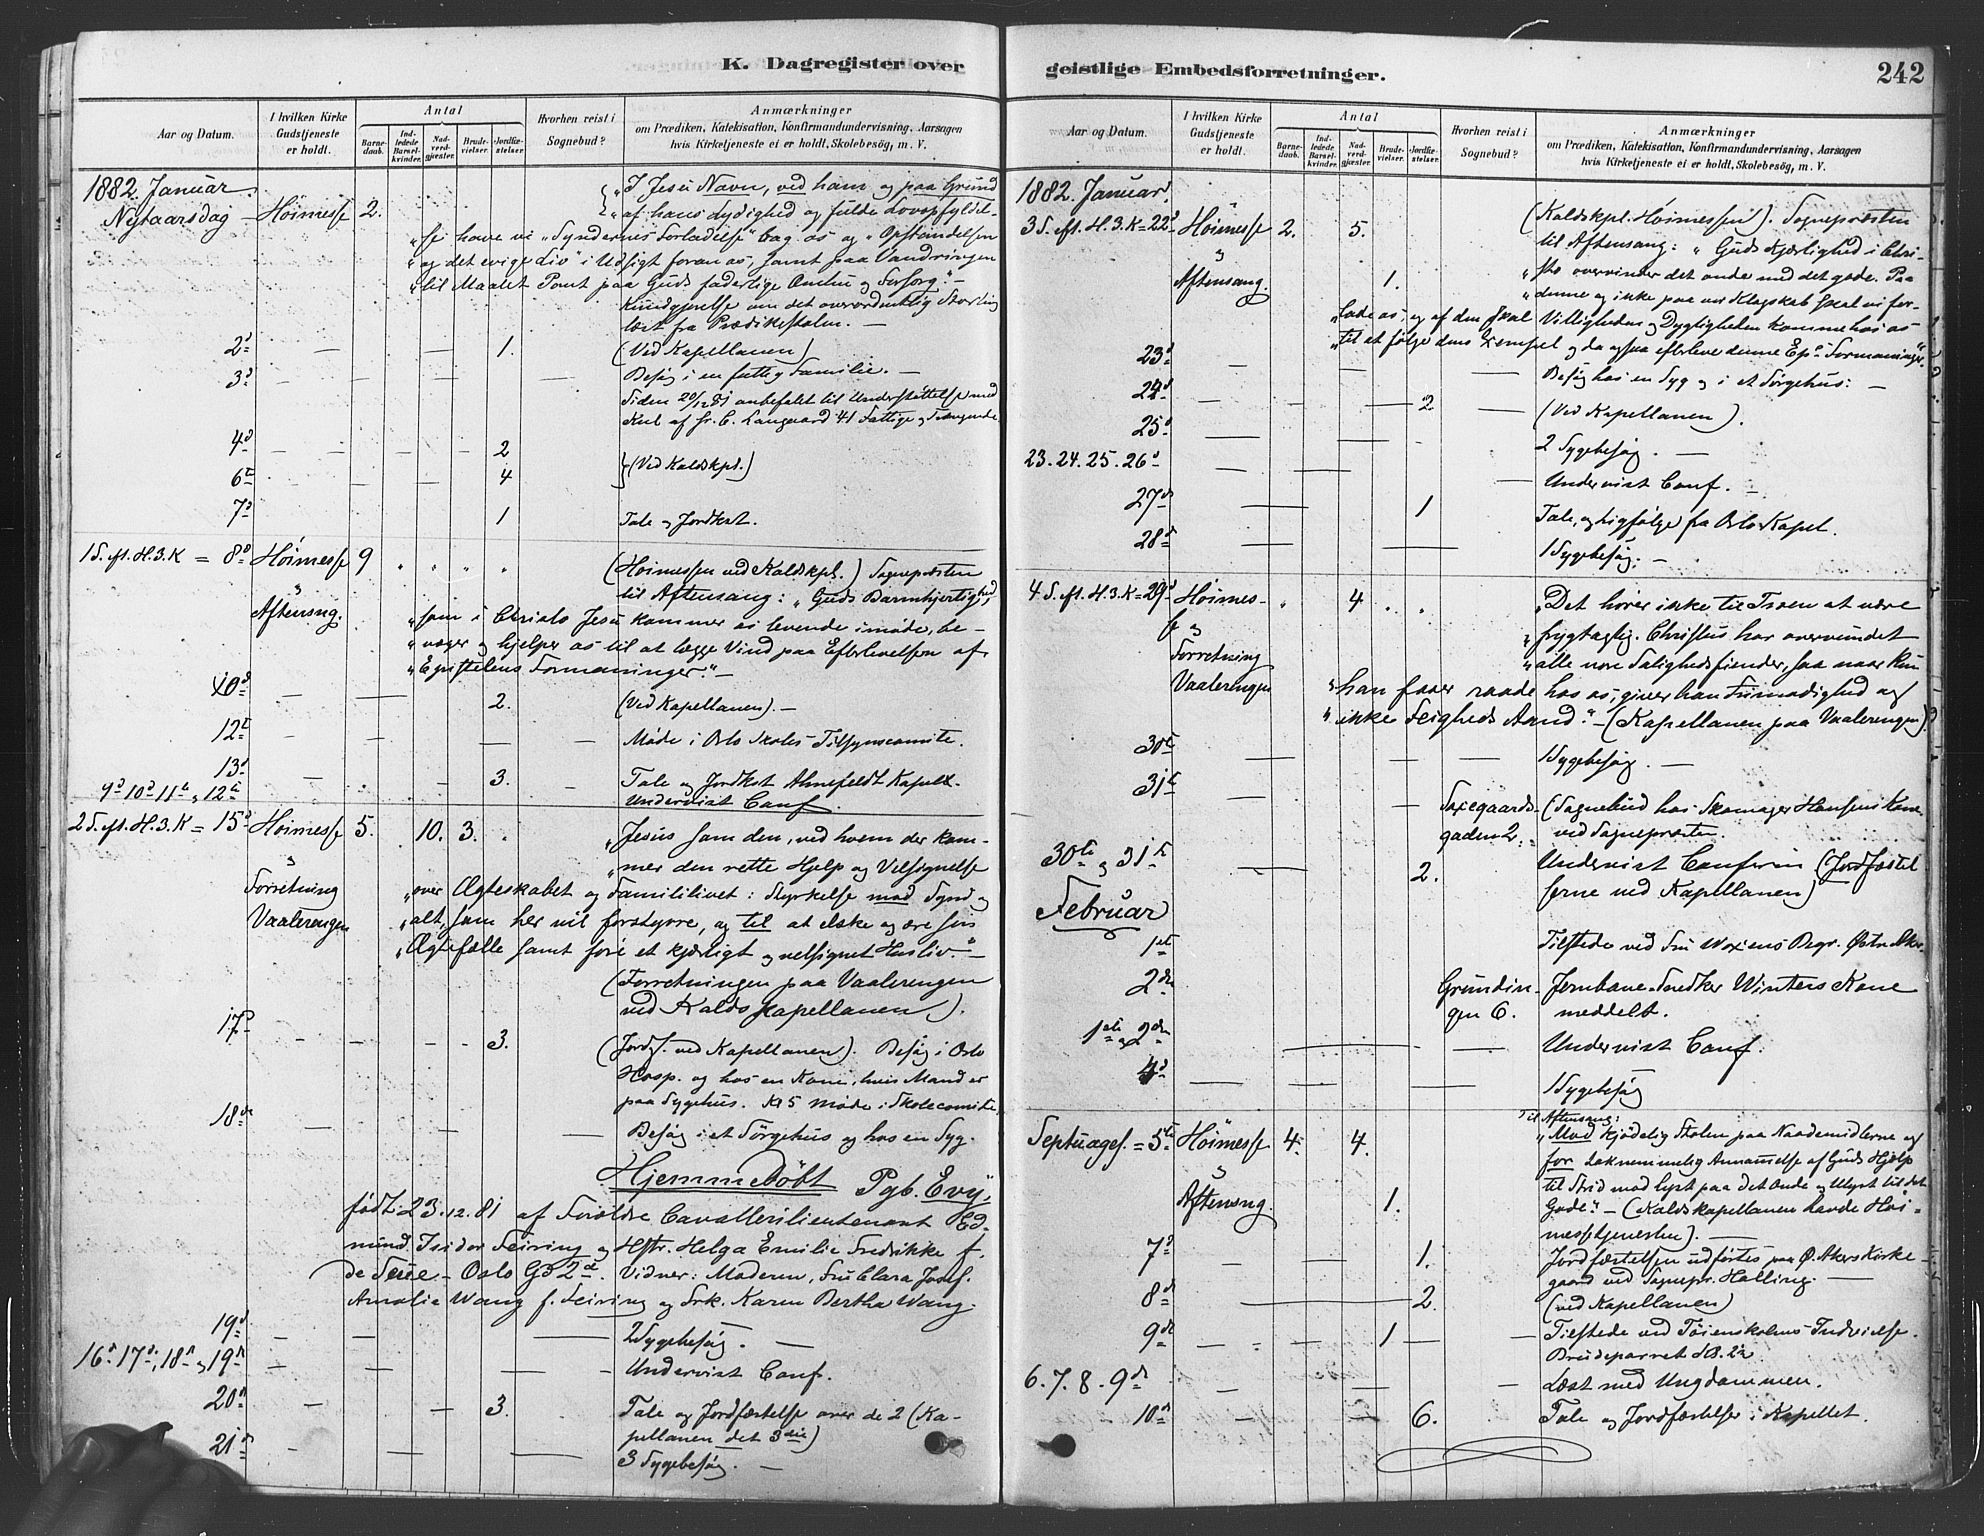 K. Dagregister over
Aar og Datum.
I hvilken Kirke Gudstjeneste er holdt.
Antal
Barnedaab.
Indledede Barselkvinder.
Nadverdgjæster.
Brudevielser.
Jordfæstelser.
Hvorhen reist i Sognebud?
Anmærkninger
om Prædiken, Katekisation, Konfirmandundervisning, Aarsagen
hvis Kirketjeneste ei er holdt, Skolebesøg, m. V.
1882 Januar
Nytaarsdag – Høimesse 2. „I Jesu Navn, ved hans og paa Grund
„af hans Lydighed og fulde Lovopfyldel-
„se have vi „Syndernes Forladelse" bag os og „Opstandelsen
„og det evige Liv" i Udsigt foran os, samt paa Vandringen
„til Maalet Pant paa Guds faderlige Omhu og Forsorg." –
Kundgjørelse om det overordentlig Storting
læst fra Prædikestolen. –
2d — — 1. (Ved Kapellanen)
3d Besøg i en fattig Familie. –
Siden 20/12 81 anbefalet til Understøttelse med
Kul af Hr. C. Langaard 41 Fattige og Trængende.
4d 2
6te 4 (Ved Kaldskpl.)
7d 1 Tale og Jordkast.
1 S. eft. H. 3. K = 8d Høimesse 9 „ „ „ „ (Høimessen ved Kaldskpl.) Sognepræsten
„
Aftensng. til Aftensang: „Guds Barmhjertighed,
„som i Christo Jesu kommer os levende imøde, be-
„væger og hjelper os til at lægge Vind paa Efterlevelsen af
„Epistelens Formaninger." –
10d — — 2. (Ved Kapellanen). –
12te Møde i Oslo Skoles Tilsynscomite.
13d — 3. — Tale og Jordkst Ahnefeldt Kapell.
9d 10d 11te og 12te Undervist Conf.
2 S. eft. H. 3. K = 15d Høimesse 5. 10. 3. „ „Jesus som den, ved hvem der kom-
og
Forretning
Vaalerengen
„mer den rette Hjelp og Velsignelse
„over Ægteskabet og Familielivet: Styrkelse mod Synd og
„alt, som her vil forstyrre, og til at elske og ære sin
„Ægtefælle samt føre et kjærligt og velsignet Husliv." –
(Forretningen paa Vaalerengen
ved Kaldskapellanen).
17d 3. (Jordf. ved Kapellanen). Besøg i Oslo
Hosp. og hos en Kone, hvis Mand er
paa Sygehus. Kl 5 Møde i Skolecomite
18de Besøg i et Sørgehus og hos en Syg.
Hjemmedøbt Pgb. Evy,
født 23.12.81 af Forældre Cavallerilieutenant Ed-
mund Isidor Feiring og Hstr. Helga Emilie Fredrikke f.
de Seue – Oslo Gd 2de. Vidner: Moderen, Fru Clara Josef.
Amalie Wang f. Feiring og Frk. Karen Bertha Wang.
19d 2 Sygebesøg. –
16d 17d, 18n og 19n Undervist Conf.
20n 3. Tale og Jordfæstelse over de 2 (Ka-
pellanen det 3die)
21de 3 Sygebesøg. –
geistlige Embedsforretninger.
242
Aar og Datum.
I hvilken Kirke Gudstjeneste er holdt.
Antal
Barnedaab.
Indledede Barselkvinder.
Nadverdgjæster.
Brudevielser.
Jordfæstelser.
Hvorhen reist i Sognebud?
Anmærkninger
om Prædiken, Katekisation, Konfirmandundervisning, Aarsagen
hvis Kirketjeneste ei er holdt, Skolebesøg, m. V.
1882. Januar.
3 S. eft. H. 3. K = 22d Høimesse 2. 5. (Kaldskpl. Høimessen). Sognepræsten
og
Aftensang. 1.
til Aftensang: „Guds Kjærlighed i Chri-
„sto overvinder det onde med det gode. Paa
„denne og ikke paa vor Klogskab skal vi for-
„lade os, og af den skal Villigheden og Dygtigheden komme hos os
„til at følge dens Exempel og da ogsaa efterleve denne Ep. Formaninger".
23d Besøg hos en Syg og i et Sørgehus: –
24d 2 (Ved Kapellanen).
25d 2 Sygebesøg. –
23. 24. 25. 26d Undervist Conf. –
27de 1 Tale, og Ligfølge fra Oslo Kapel.
28de 1 Sygebesøg. –
4 S. eft. H. 3. K = 29d Høimes- „ 4 „ „ „Det hører ikke til Troen at være
se og
Forretning
Vaalerengen
„frygtagtig. Christus har overvundet
„alle vore Saligheds fiender, saa naar kun
„han faaer raade hos os, giver han Frimodighed og
„ikke Feigheds Aand." – (Kapellanen paa Vaalerengen)
30te 1 Sygebesøg. –
31te Saxegaards-
gaden 2. (Sognebud hos Skomager Hansens Kone
ved Sognepræsten.
30te og 31te 2. Undervist Conferm (Jordfæstel
serne ved Kapellanen)
Februar
1ste Tilstede ved Fru Woxens Begr. Østre Aker.
2den Grundin-
gen 6. Jernbane-Snedker Winters Kone
meddelt.
1ste og 2den Undervist Conf.
4d 1 Sygebesøg
Septuages. = 5te Høimesse 4. 4. Til Aftensang:
„Mod kjødelig Stolen paa Naademidlerne og
og
Aftensng. 1.
for taknemmelig Annammelse af Guds Hjælp
til Strid mod Lyst paa det Onde og Ulyst til det
Gode". – (Kaldskapellanen havde Høi-
messetjenesten). –
7d 1. Jordfæstelsen udførtes paa Ø. Akers Kirke-
gaard ved Sognepr. Halling. –
8de 2. (ved Kapellanen)
9de 1 Tilstede ved Tøienskolens Indvielse.
Brudeparret
6. 7. 8. 9de Læst med Ungdommen.
10n 6. Tale og Jordfæstelser i Kapellet.